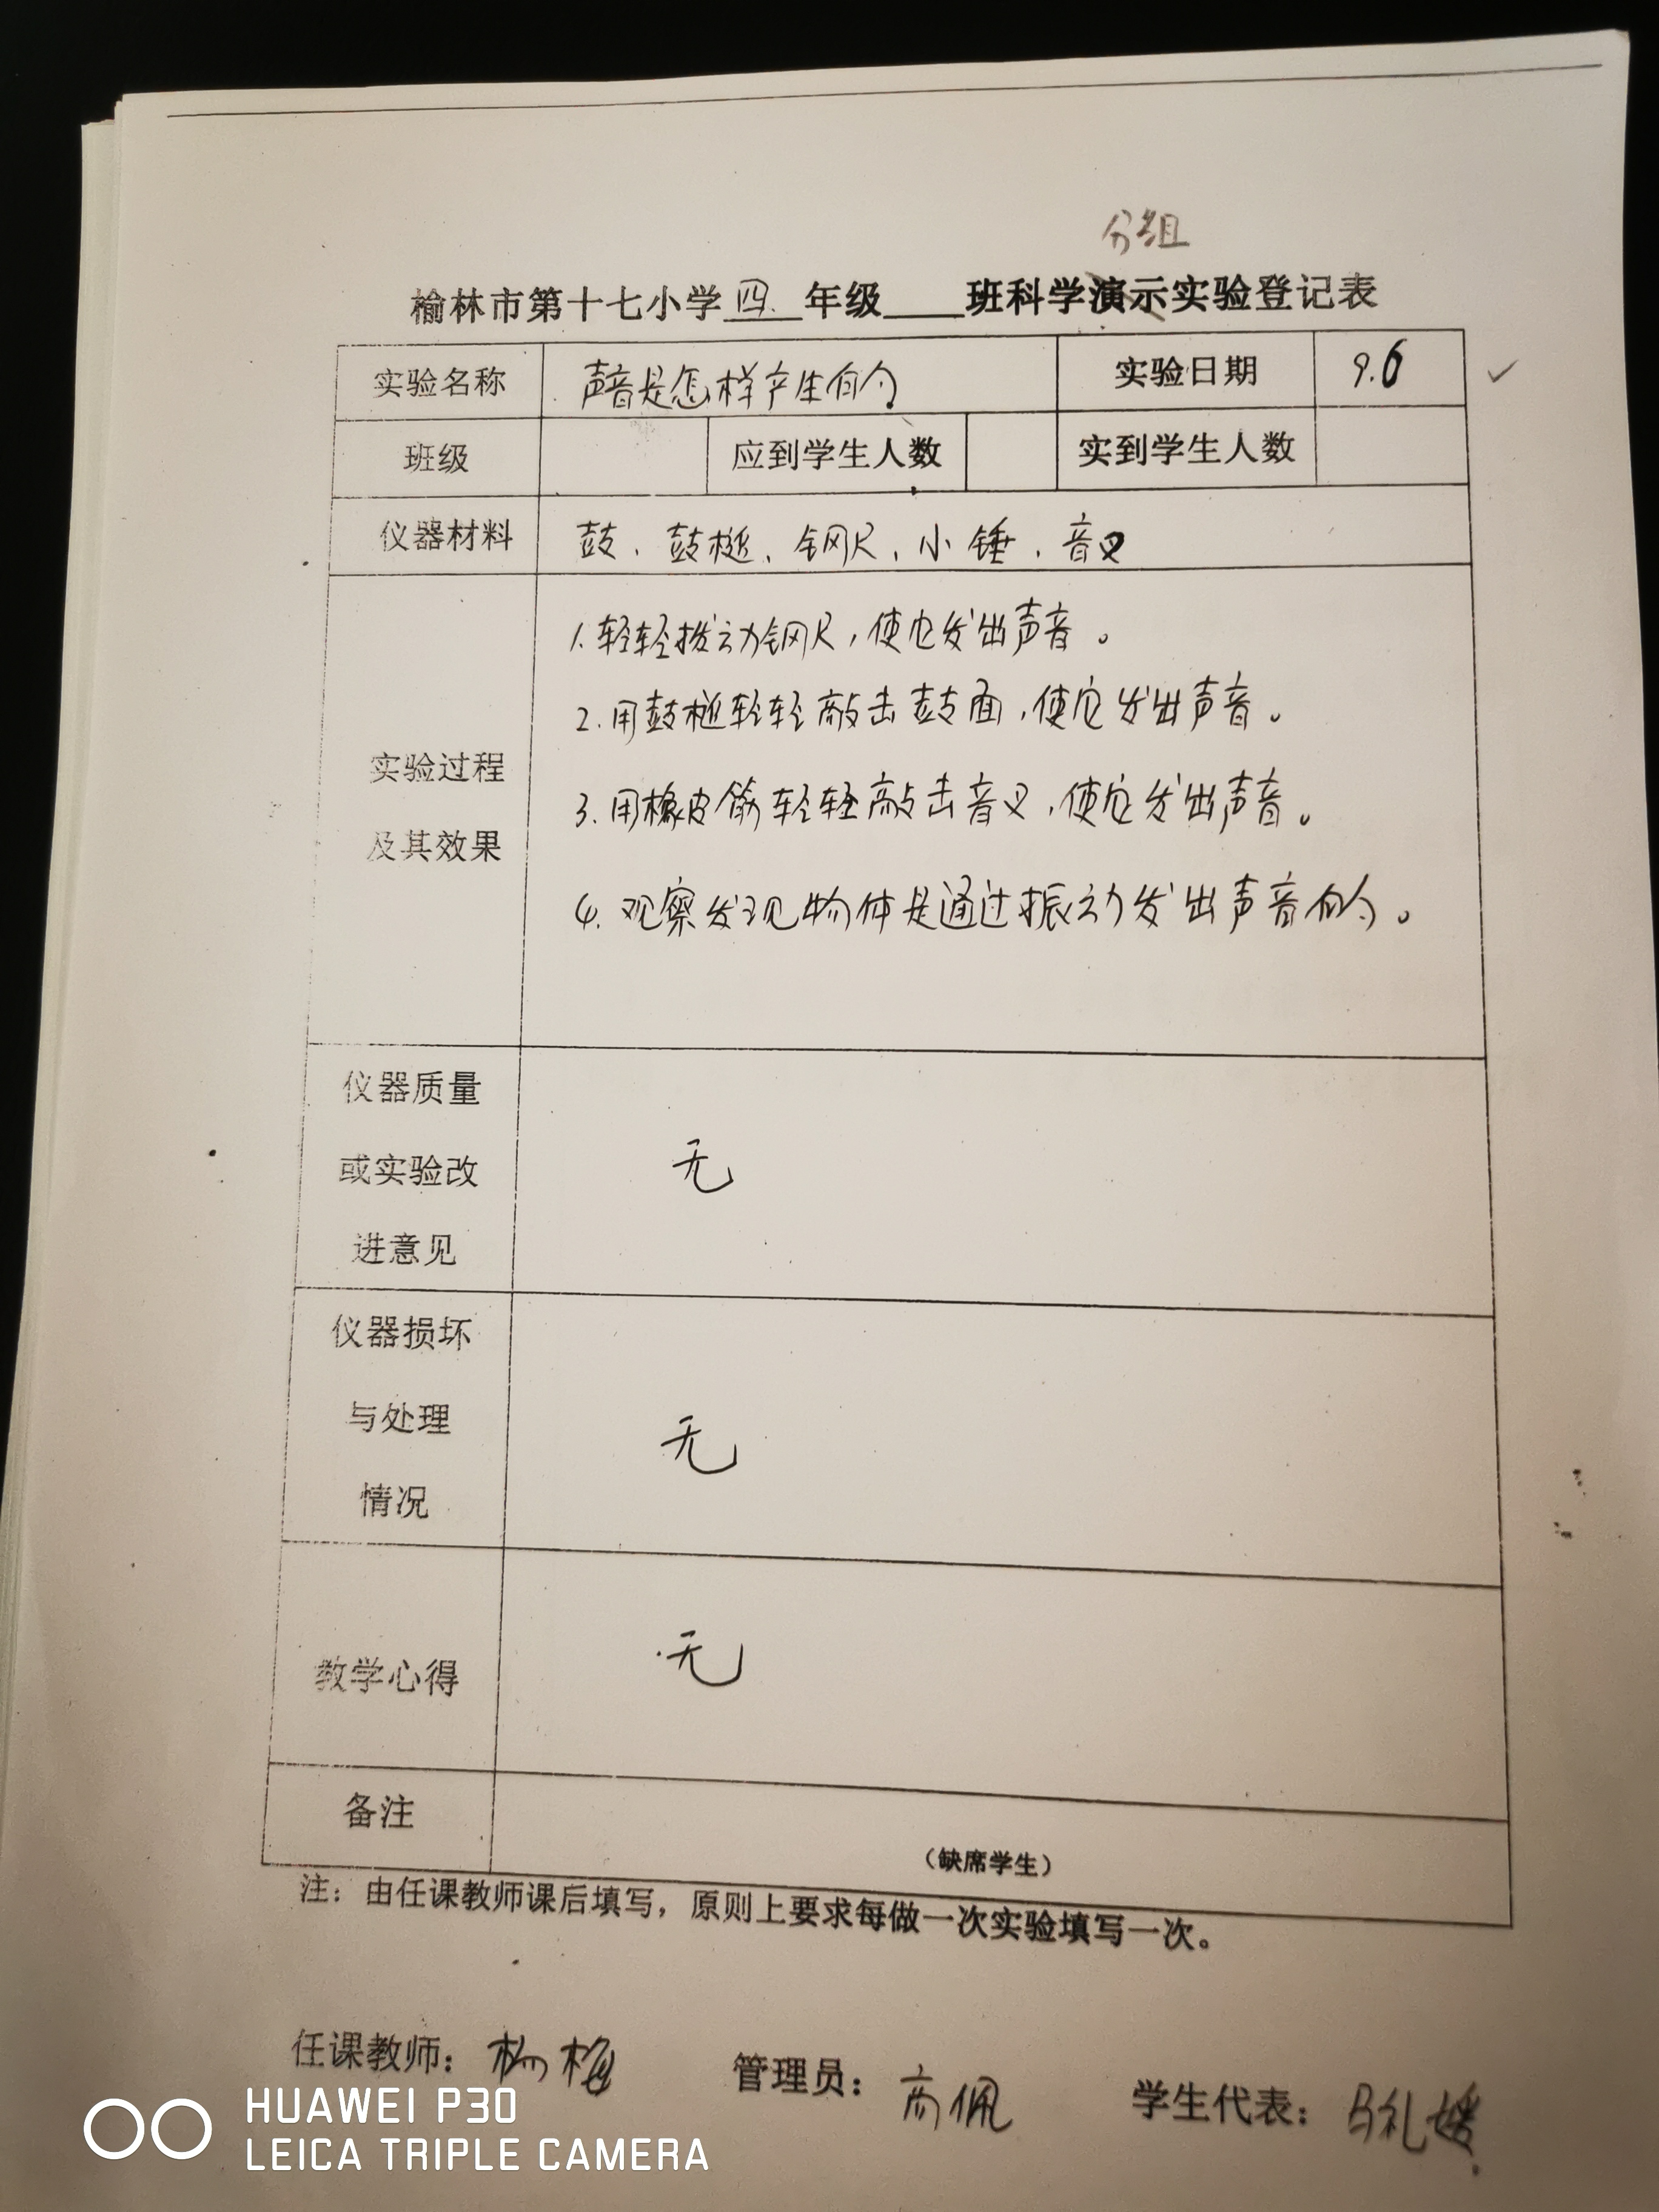 分组
榆林市第十七小学四年级____班科学演示实验登记表
实验名称 声音是怎样产生的 实验日期 9.6
班级 应到学生人数 实到学生人数
仪器材料 鼓、鼓槌、钢尺、小锤、音叉
1.轻轻拨动钢尺，使它发出声音。
2.用鼓槌轻轻敲击鼓面，使它发出声音。
3.用橡皮筋轻轻敲击音叉，使它发出声音。
4.观察发现物体是通过振动发出声音的。
实验过程
及其效果
仪器质量
或实验改
进意见
无
仪器损坏
与处理
情况
无
教学心得 无
备注
（缺席学生）
注：由任课教师课后填写，原则上要求每做一次实验填写一次。
任课教师：杨梅 管理员：高佩 学生代表：马礼媛
HUAWEI P30
LEICA TRIPLE CAMERA